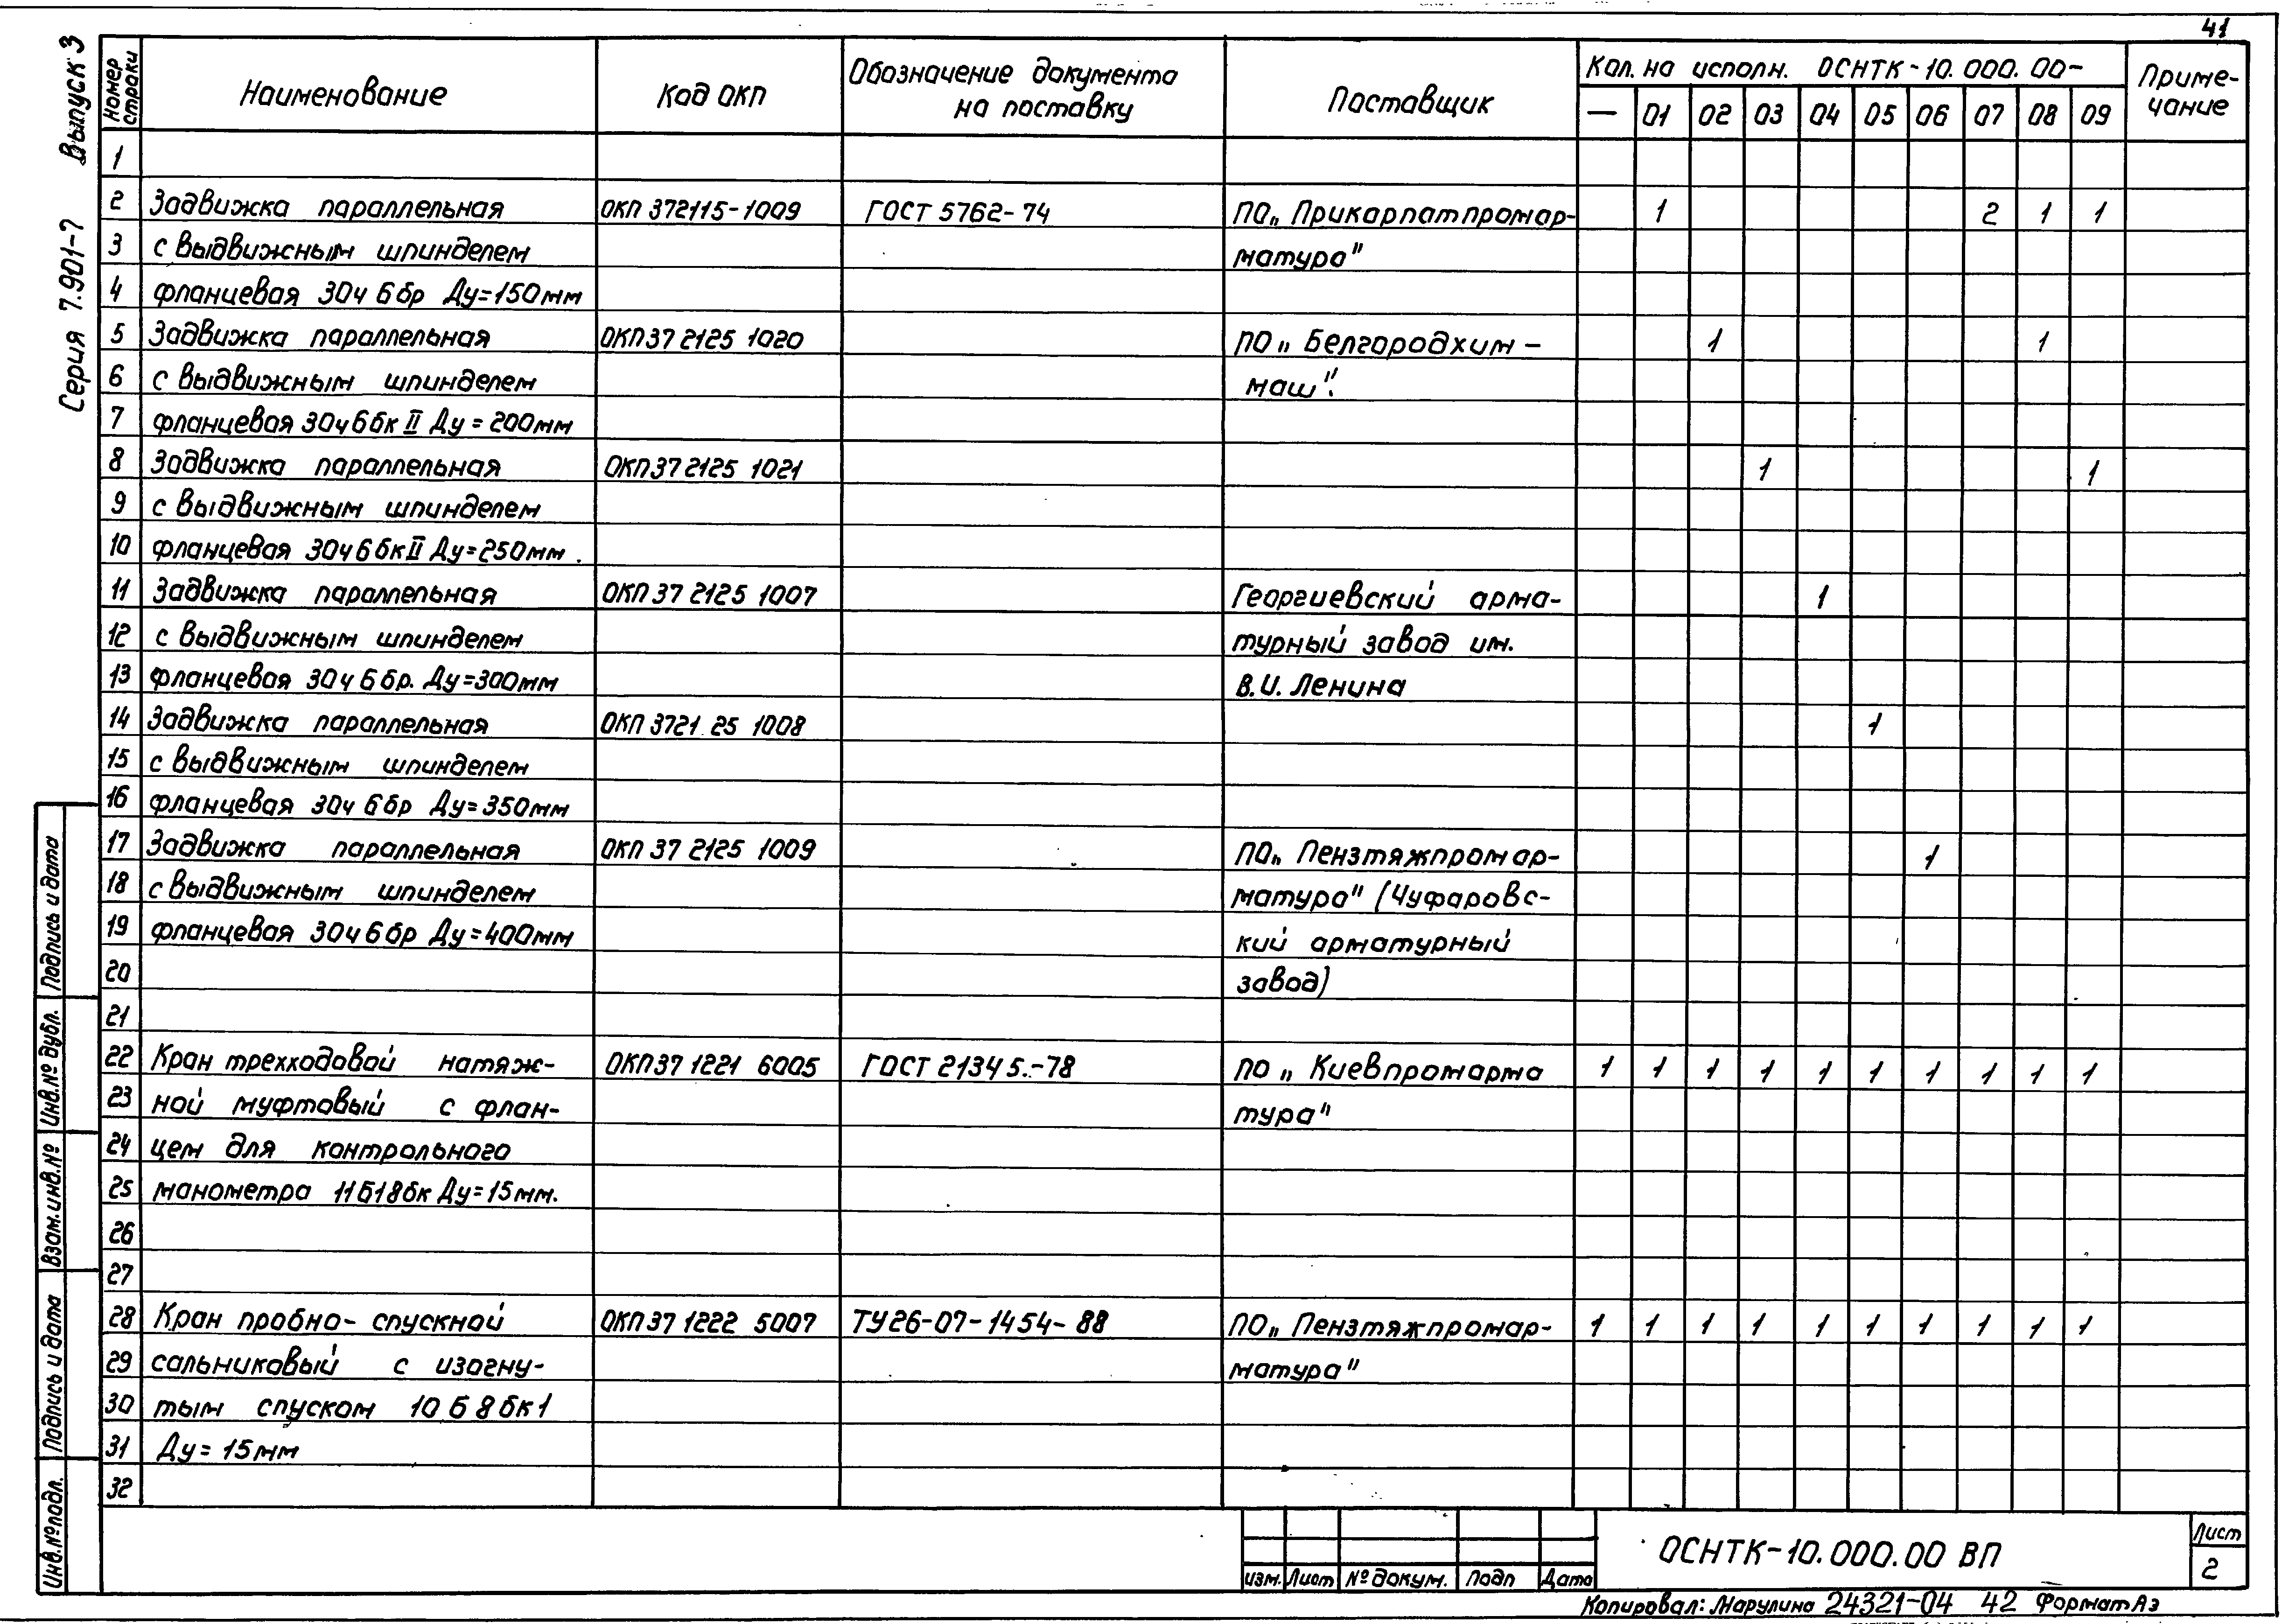 41
Серия 7.901-7 Выпуск 3
Номер строки Наименование Код ОКП Обозначение документа на поставку Поставщик Кол. на исполн. ОСНТК-10.000.00- Приме-чание
— 01 02 03 04 05 06 07 08 09
1
2 Задвижка параллельная ОКП 372115-1009 ГОСТ 5762-74 ПО „Прикарпатпромар- 1 2 1 1
3 с выдвижным шпинделем матура"
4 фланцевая 30ч 6бр Ду=150мм
5 Задвижка параллельная ОКП 37 2125 1020 ПО „Белгородхим- 1 1
6 с выдвижным шпинделем маш".
7 фланцевая 30ч6бк II Ду=200мм
8 Задвижка параллельная ОКП 37 2125 1021 1 1
9 с выдвижным шпинделем
10 фланцевая 30ч6бк II Ду=250мм.
11 Задвижка параллельная ОКП 37 2125 1007 Георгиевский арма- 1
12 с выдвижным шпинделем турный завод им.
13 фланцевая 30ч6бр. Ду=300мм В.И. Ленина
14 Задвижка параллельная ОКП 3721 25 1008 1
15 с выдвижным шпинделем
16 фланцевая 30ч 6бр Ду=350мм
17 Задвижка параллельная ОКП 37 2125 1009 ПО „Пензтяжпромар- 1
18 с выдвижным шпинделем матура" (Чуфаровс-
19 фланцевая 30ч6бр Ду=400мм кий арматурный
20 завод)
21
22 Кран трехходовой натяж- ОКП 37 1221 6005 ГОСТ 21345.-78 ПО „Киевпромарма 1 1 1 1 1 1 1 1 1 1
23 ной муфтовый с флан- тура"
24 цем для контрольного
25 манометра 11Б18бк Ду=15мм.
26
27
28 Кран пробно-спускной ОКП 37 1222 5007 ТУ26-07-1454-88 ПО „Пензтяжпромар- 1 1 1 1 1 1 1 1 1 1
29 сальниковый с изогну- матура"
30 тым спуском 10Б8бк1
31 Ду=15мм
32
Подпись и дата
Инв.№ дубл.
Взам.инв.№
Подпись и дата
Инв.№подл.
Изм. Лист № докум. Подп Дата
ОСНТК-10.000.00 ВП
Лист
2
Копировал: Марулина 24321-04 42 Формат А3